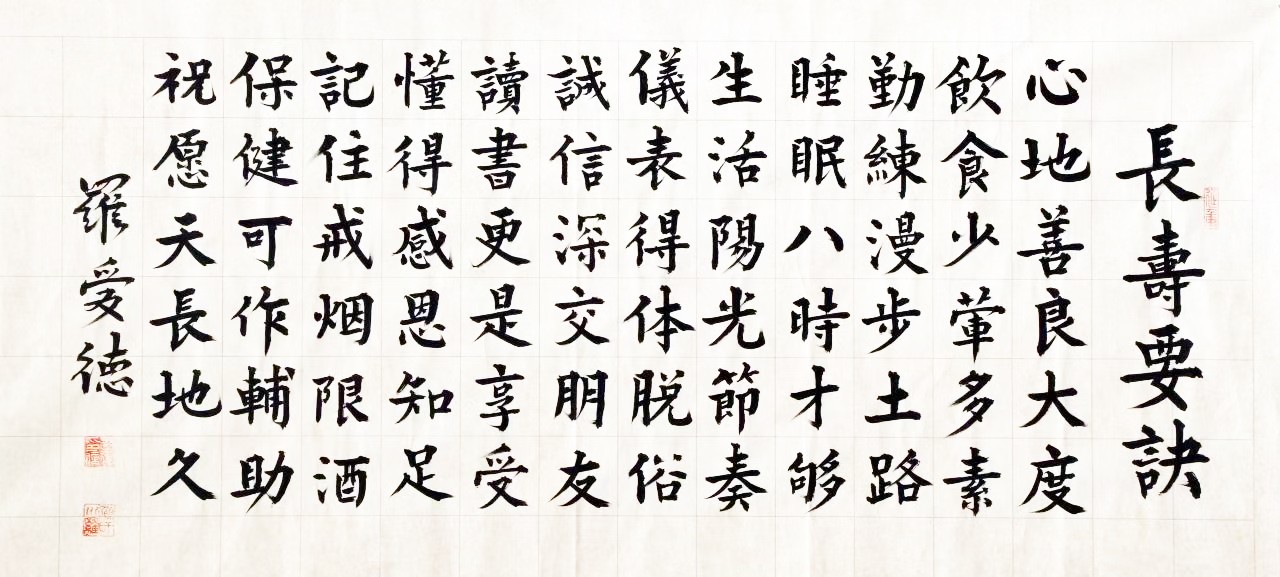 長壽要訣
心地善良大度
飲食少葷多素
勤練漫步土路
睡眠八時才够
生活陽光節奏
儀表得体脱俗
誠信深交朋友
讀書更是享受
懂得感恩知足
記住戒烟限酒
保健可作輔助
祝愿天長地久
羅愛德